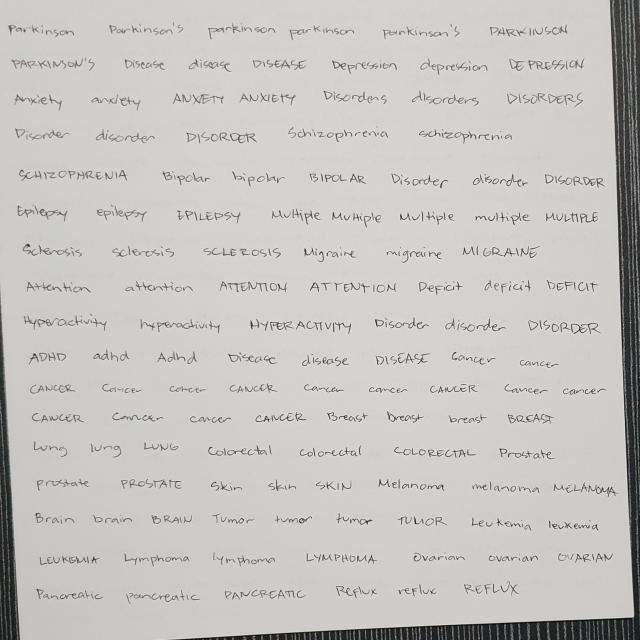 Parkinson Parkinson's parkinson parkinson parkinson's PARKINSON
PARKINSON'S Disease disease DISEASE Depression depression DEPRESSION
Anxiety anxiety ANXETY ANXIETY Disorders disorders DISORDERS
Disorder disorder DISORDER Schizophrenia schizophrenia
SCHIZOPHRENIA Bipolar bipolar BIPOLAR Disorder disorder DISORDER
Epilepsy epilepsy EPILEPSY Multiple Multiple Multiple multiple MULTIPLE
Sclerosis sclerosis SCLEROSIS Migraine migraine MIGRAINE
Attention attention ATTENTION ATTENTION Deficit deficit DEFICIT
Hyperactivity hyperactivity HYPERACTIVITY Disorder disorder DISORDER
ADHD adhd Adhd Disease disease DISEASE Cancer cancer
CANCER Cancer cancer CANCER Cancer cancer CANCER Cancer cancer
CANCER Cancer cancer CANCER Breast breast breast BREAST
Lung lung LUNG Colorectal colorectal COLORECTAL Prostate
prostate PROSTATE Skin skin SKIN Melanoma melanoma MELANOMA
Brain brain BRAIN Tumor tumor tumor TUMOR Leukemia leukemia
LEUKEMIA Lymphoma lymphoma LYMPHOMA Ovarian ovarian OVARIAN
Pancreatic pancreatic PANCREATIC Reflux reflux REFLUX